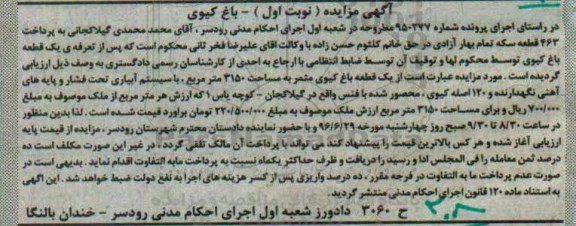 آگهی مزایده ( نوبت اول ) - باغ کیوی
در راستای اجرای پرونده شماره ۹۵۰۳۷۷ مطروحه در شعبه اول اجرای احکام مدنی رودسر ، آقای محمد محمدی گیلاکجانی به پرداخت
۴۶۳ قطعه سکه تمام بهار آزادی در حق خانم کلثوم حسن زاده با وکالت اقای علیرضا فخر ثانی محکوم است که پس از تعرفه ی یک قطعه
باغ کیوی توسط محکوم لها و توقیف آن توسط ضابط انتظامی با ارجاع به احدی از کارشناسان رسمی دادگستری به وصف ذیل ارزیابی
گردیده است . مورد مزایده عبارت است از یک قطعه باغ کیوی مثمر به مساحت ۳۱۵۰ متر مربع ، با سیستم آبیاری تحت فشار و پایه های
آهنی نگهدارنده و ۱۲۰ اصله کیوی ، محصور شده با فنس واقع در گیلاکجان - کوچه یاس ۱ که ارزش هر متر مربع از ملک موصوف به مبلغ
۷۰۰/۰۰۰ ریال و برای مساحت ۳۱۵۰ متر مربع ارزش ملک موصوف به مبلغ ۲۲۰/۵۰۰/۰۰۰ تومان براورد قیمت شده است . لذا بدین منظور
در ساعت ۸/۳۰ تا ۹/۳۰ صبح روز چهارشنبه مورخه ۹۶/۶/۲۹ و با حضور نماینده دادستان محترم شهرستان رودسر ، مزایده از قیمت پایه
ارزیابی آغاز شده و هر کس بالاترین قیمت را پیشنهاد کند می تواند با پرداخت آن مالک تلقی گردد ، در غیر این صورت مکلف است ده
درصد ثمن معامله را فی المجلس ادا و رسید را دریافت و ظرف حداکثر یکماه نسبت به پرداخت مابه التفاوت اقدام نماید . بدیهی است در
صورت عدم پرداخت ما به التفاوت در فرجه مقرر ، ده درصد واریزی پس از کسر هزینه های اجرا به نفع دولت ضبط خواهد شد . این آگهی
به استناد ماده ۱۲۰ قانون اجرای احکام مدنی منتشر گردید.
ح ۳۰۶۰ دادورز شعبه اول اجرای احکام مدنی رودسر - خندان بالنگا